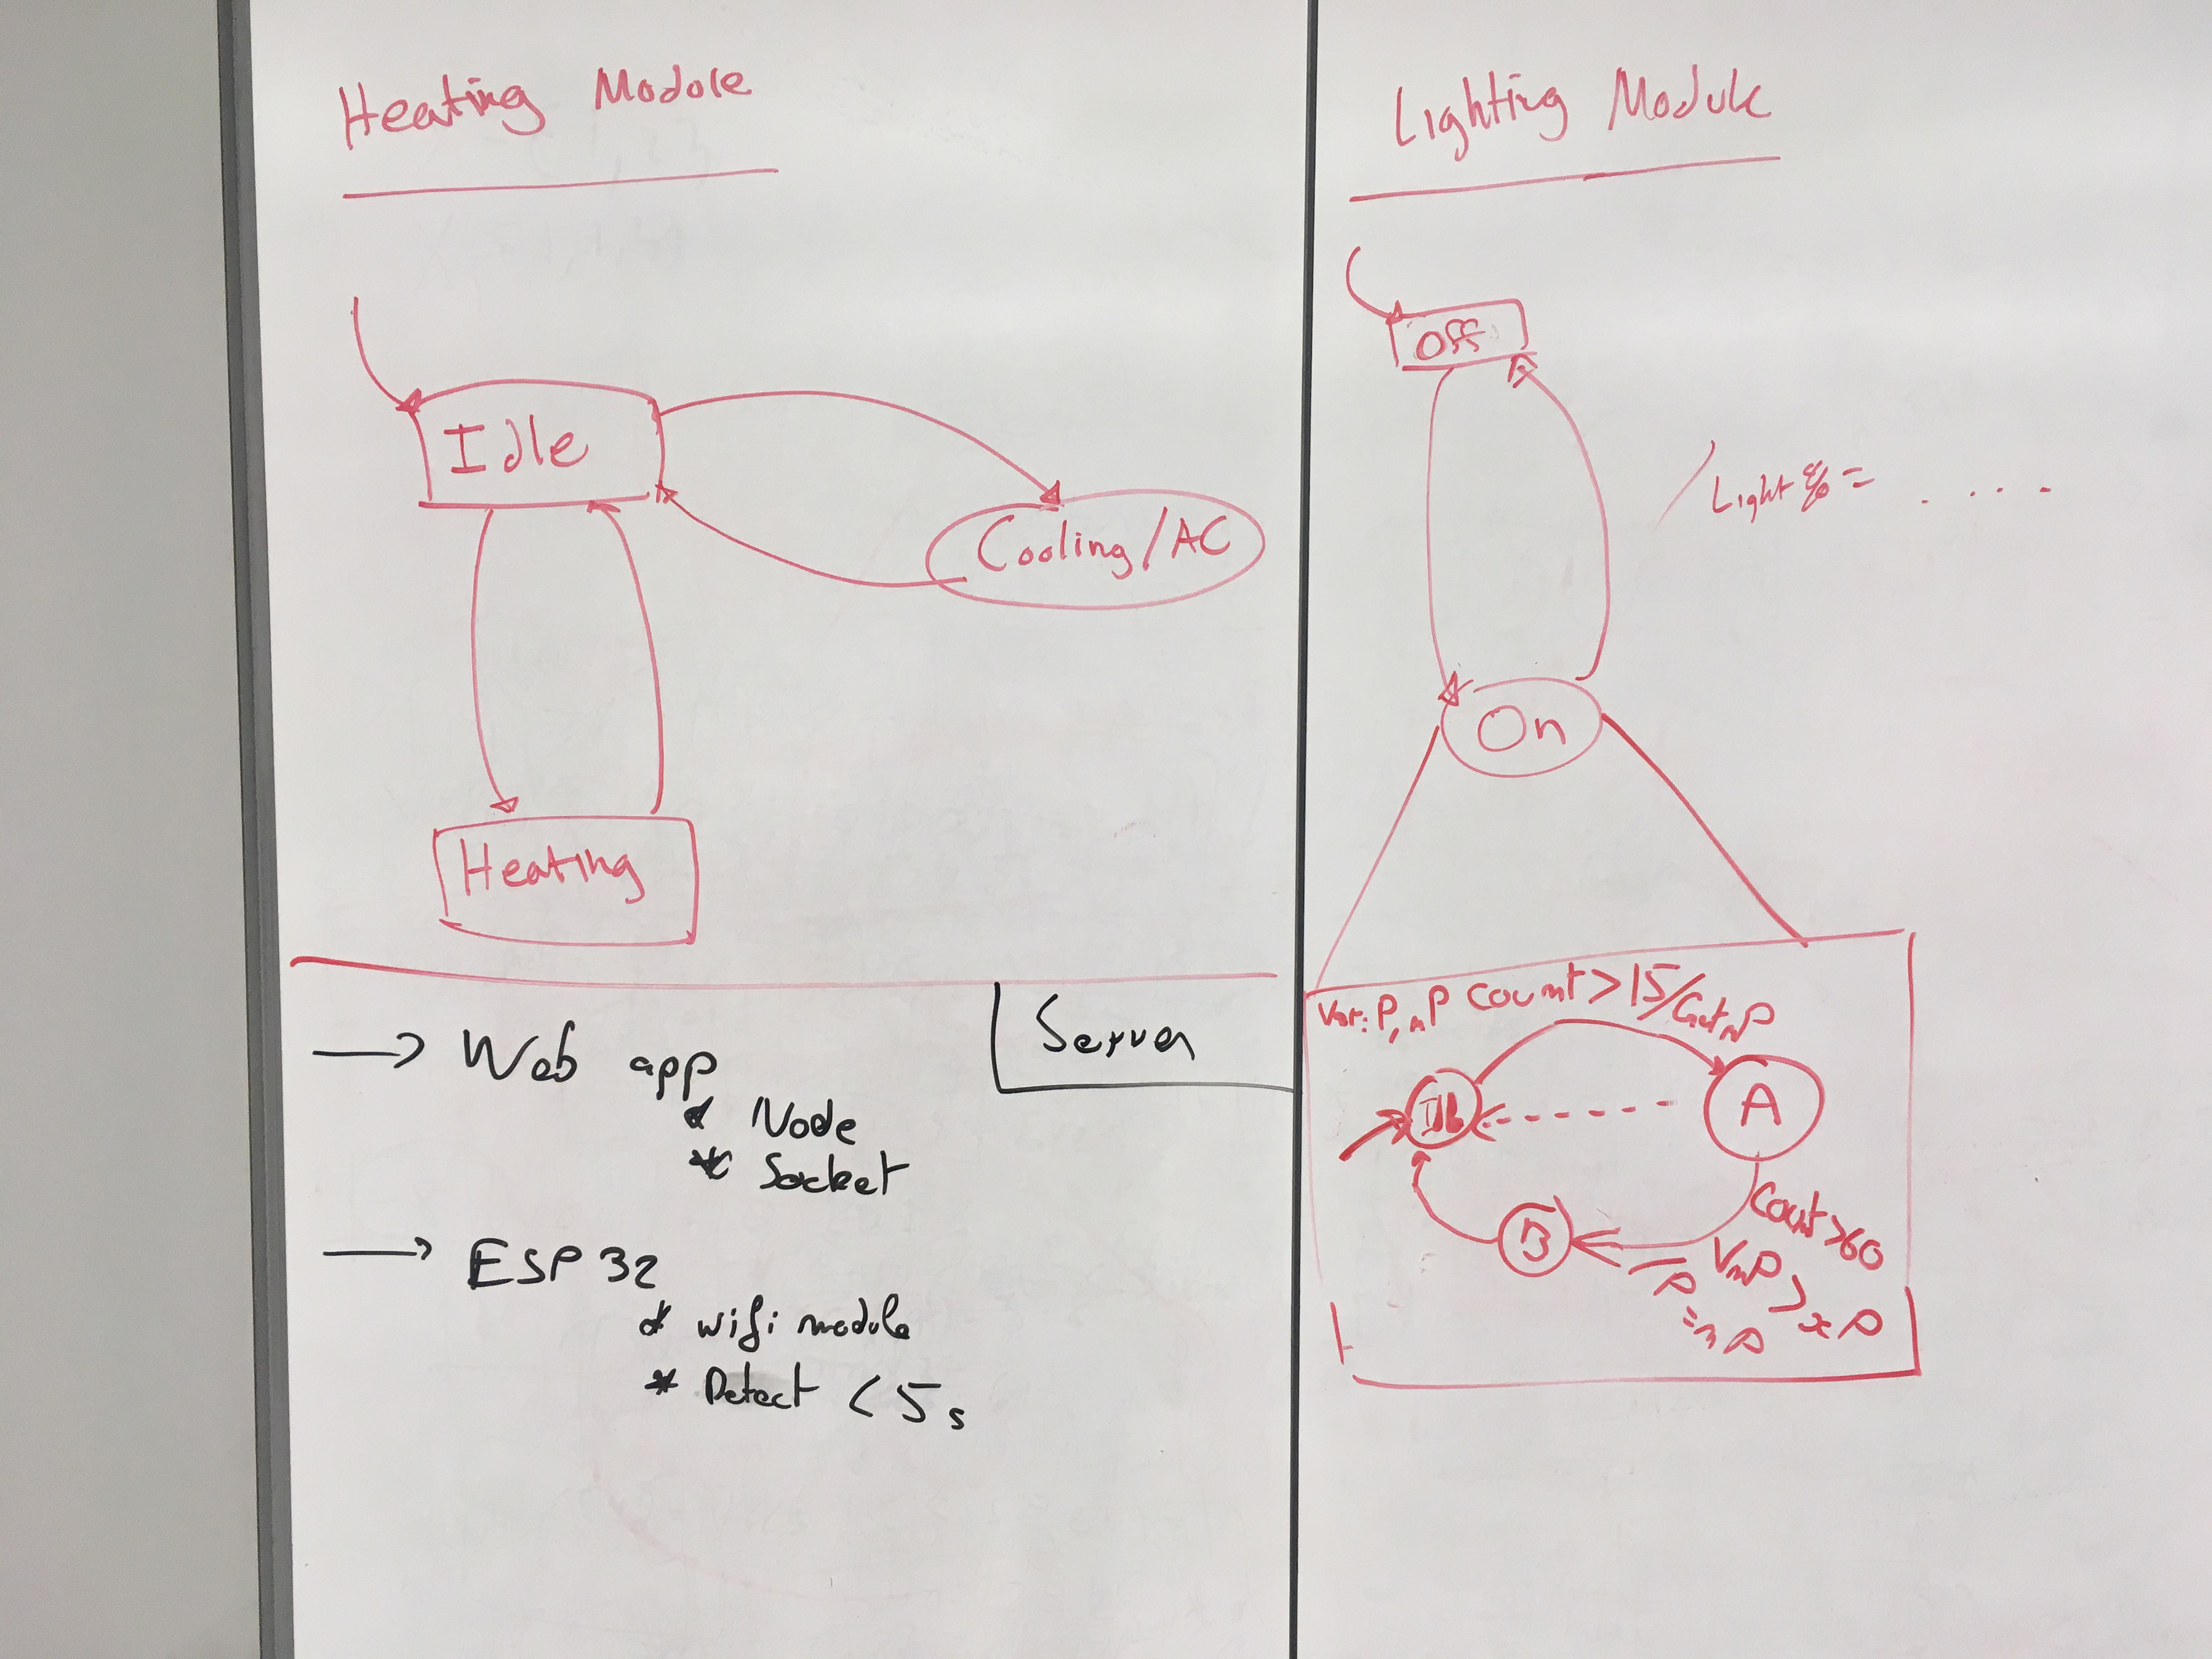 Heating Module
Idle
Cooling/AC
Heating
Server
→ Web app
* Node
* Socket
→ ESP 32
* wifi module
* Detect < 5s
Lighting Module
Off
/ Light % = . . . .
On
Var: P, nP count > 15/Get nP
A
Count > 60
B